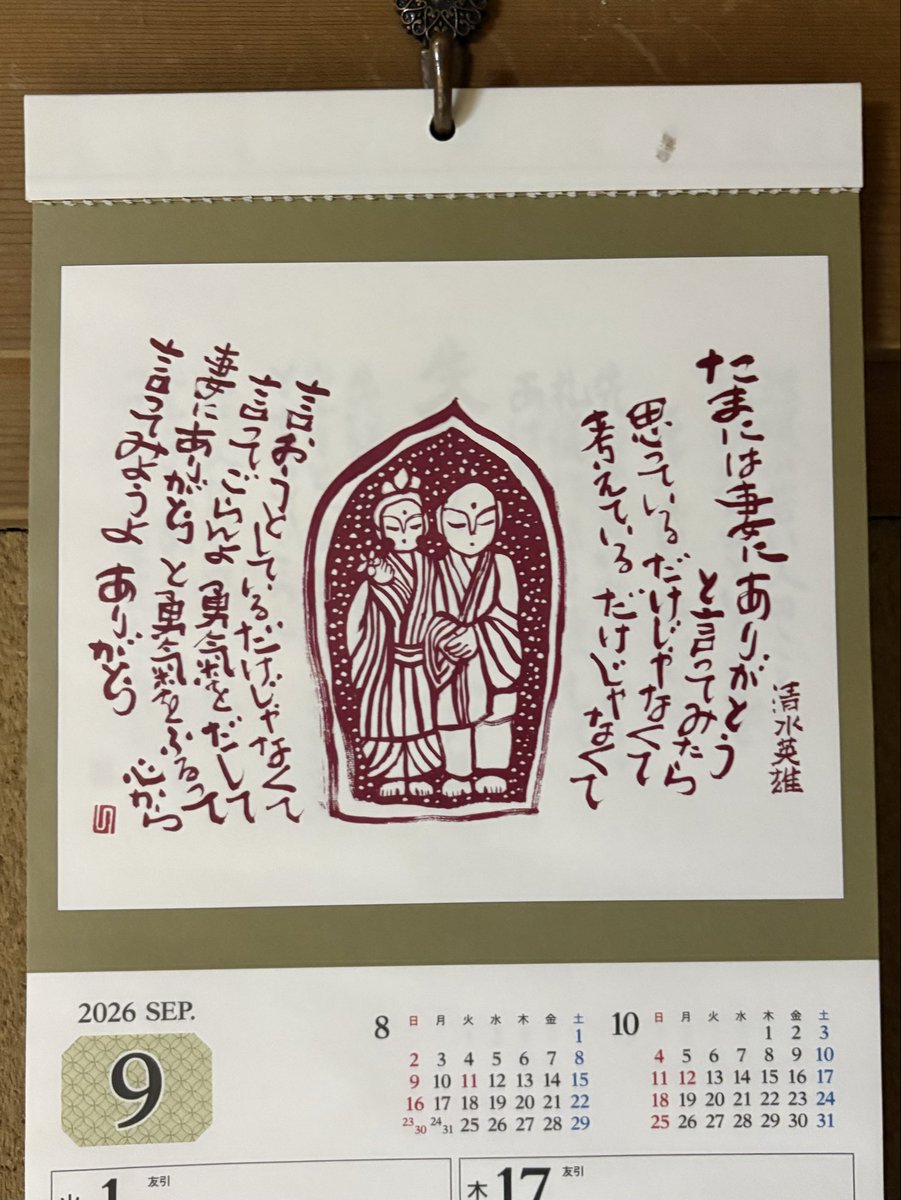 たまには妻にありがとう
と言ってみたら
思っているだけじゃなくて
考えているだけじゃなくて
清水英雄
言おうとしているだけじゃなくて
言ってごらんよ勇気をだして
妻にありがとうと勇気をふるって
言ってみようよ 心から
ありがとう
2026 SEP.
9
8
日 月 火 水 木 金 土
1
2 3 4 5 6 7 8
9 10 11 12 13 14 15
16 17 18 19 20 21 22
23/30 24/31 25 26 27 28 29
10
日 月 火 水 木 金 土
1 2 3
4 5 6 7 8 9 10
11 12 13 14 15 16 17
18 19 20 21 22 23 24
25 26 27 28 29 30 31
火 1 友引
木 17 友引